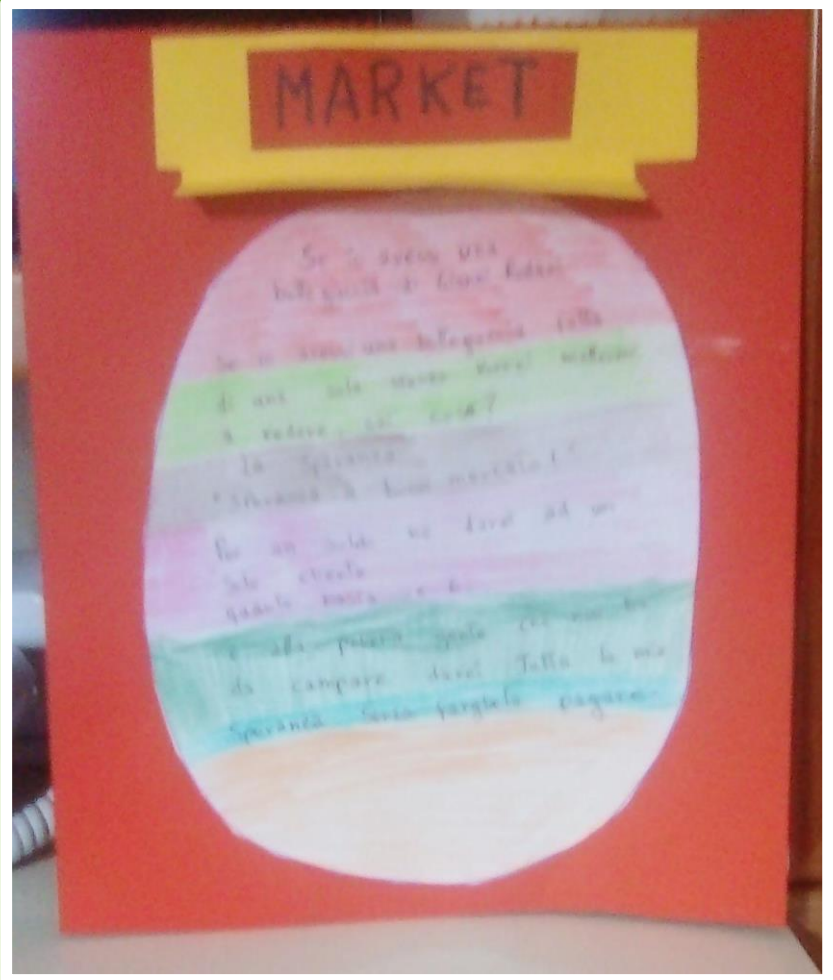 MARKET
Se io avessi una
botteguccia di Gianni Rodari
Se io avessi una botteguccia fatta
di una sola stanza vorrei mettermi
a vedere sai cosa?
la speranza
"Speranza a buon mercato!"
Per un soldo ne darei ad un
solo cliente
quanto basta
e alla povera gente che non ha
da campare darei tutta la mia
speranza senza fargliela pagare.